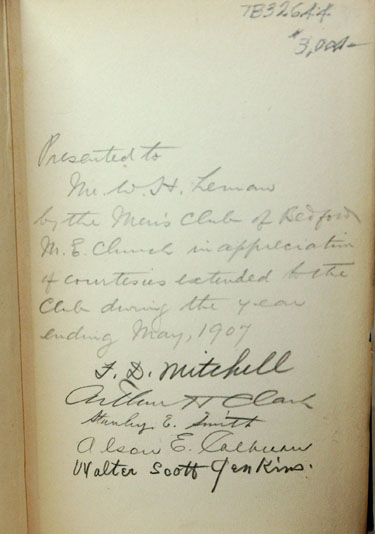 TB32644
$3,000-
Presented to
Mr. W. H. Leman
by the Men's Club of Bedford
M. E. Church in appreciation
of courtesies extended to the
Club during the year
ending May, 1907
F. D. Mitchell
Arthur H Clark
Stanley E. Smith
Alson E. Calhoun
Walter Scott Jenkins.